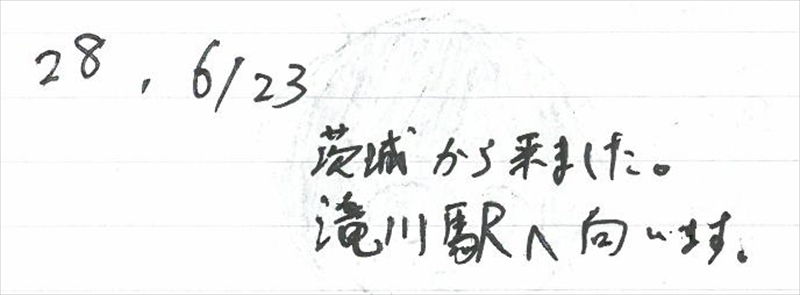 28. 6/23
茨城から来ました。
滝川駅へ向います。